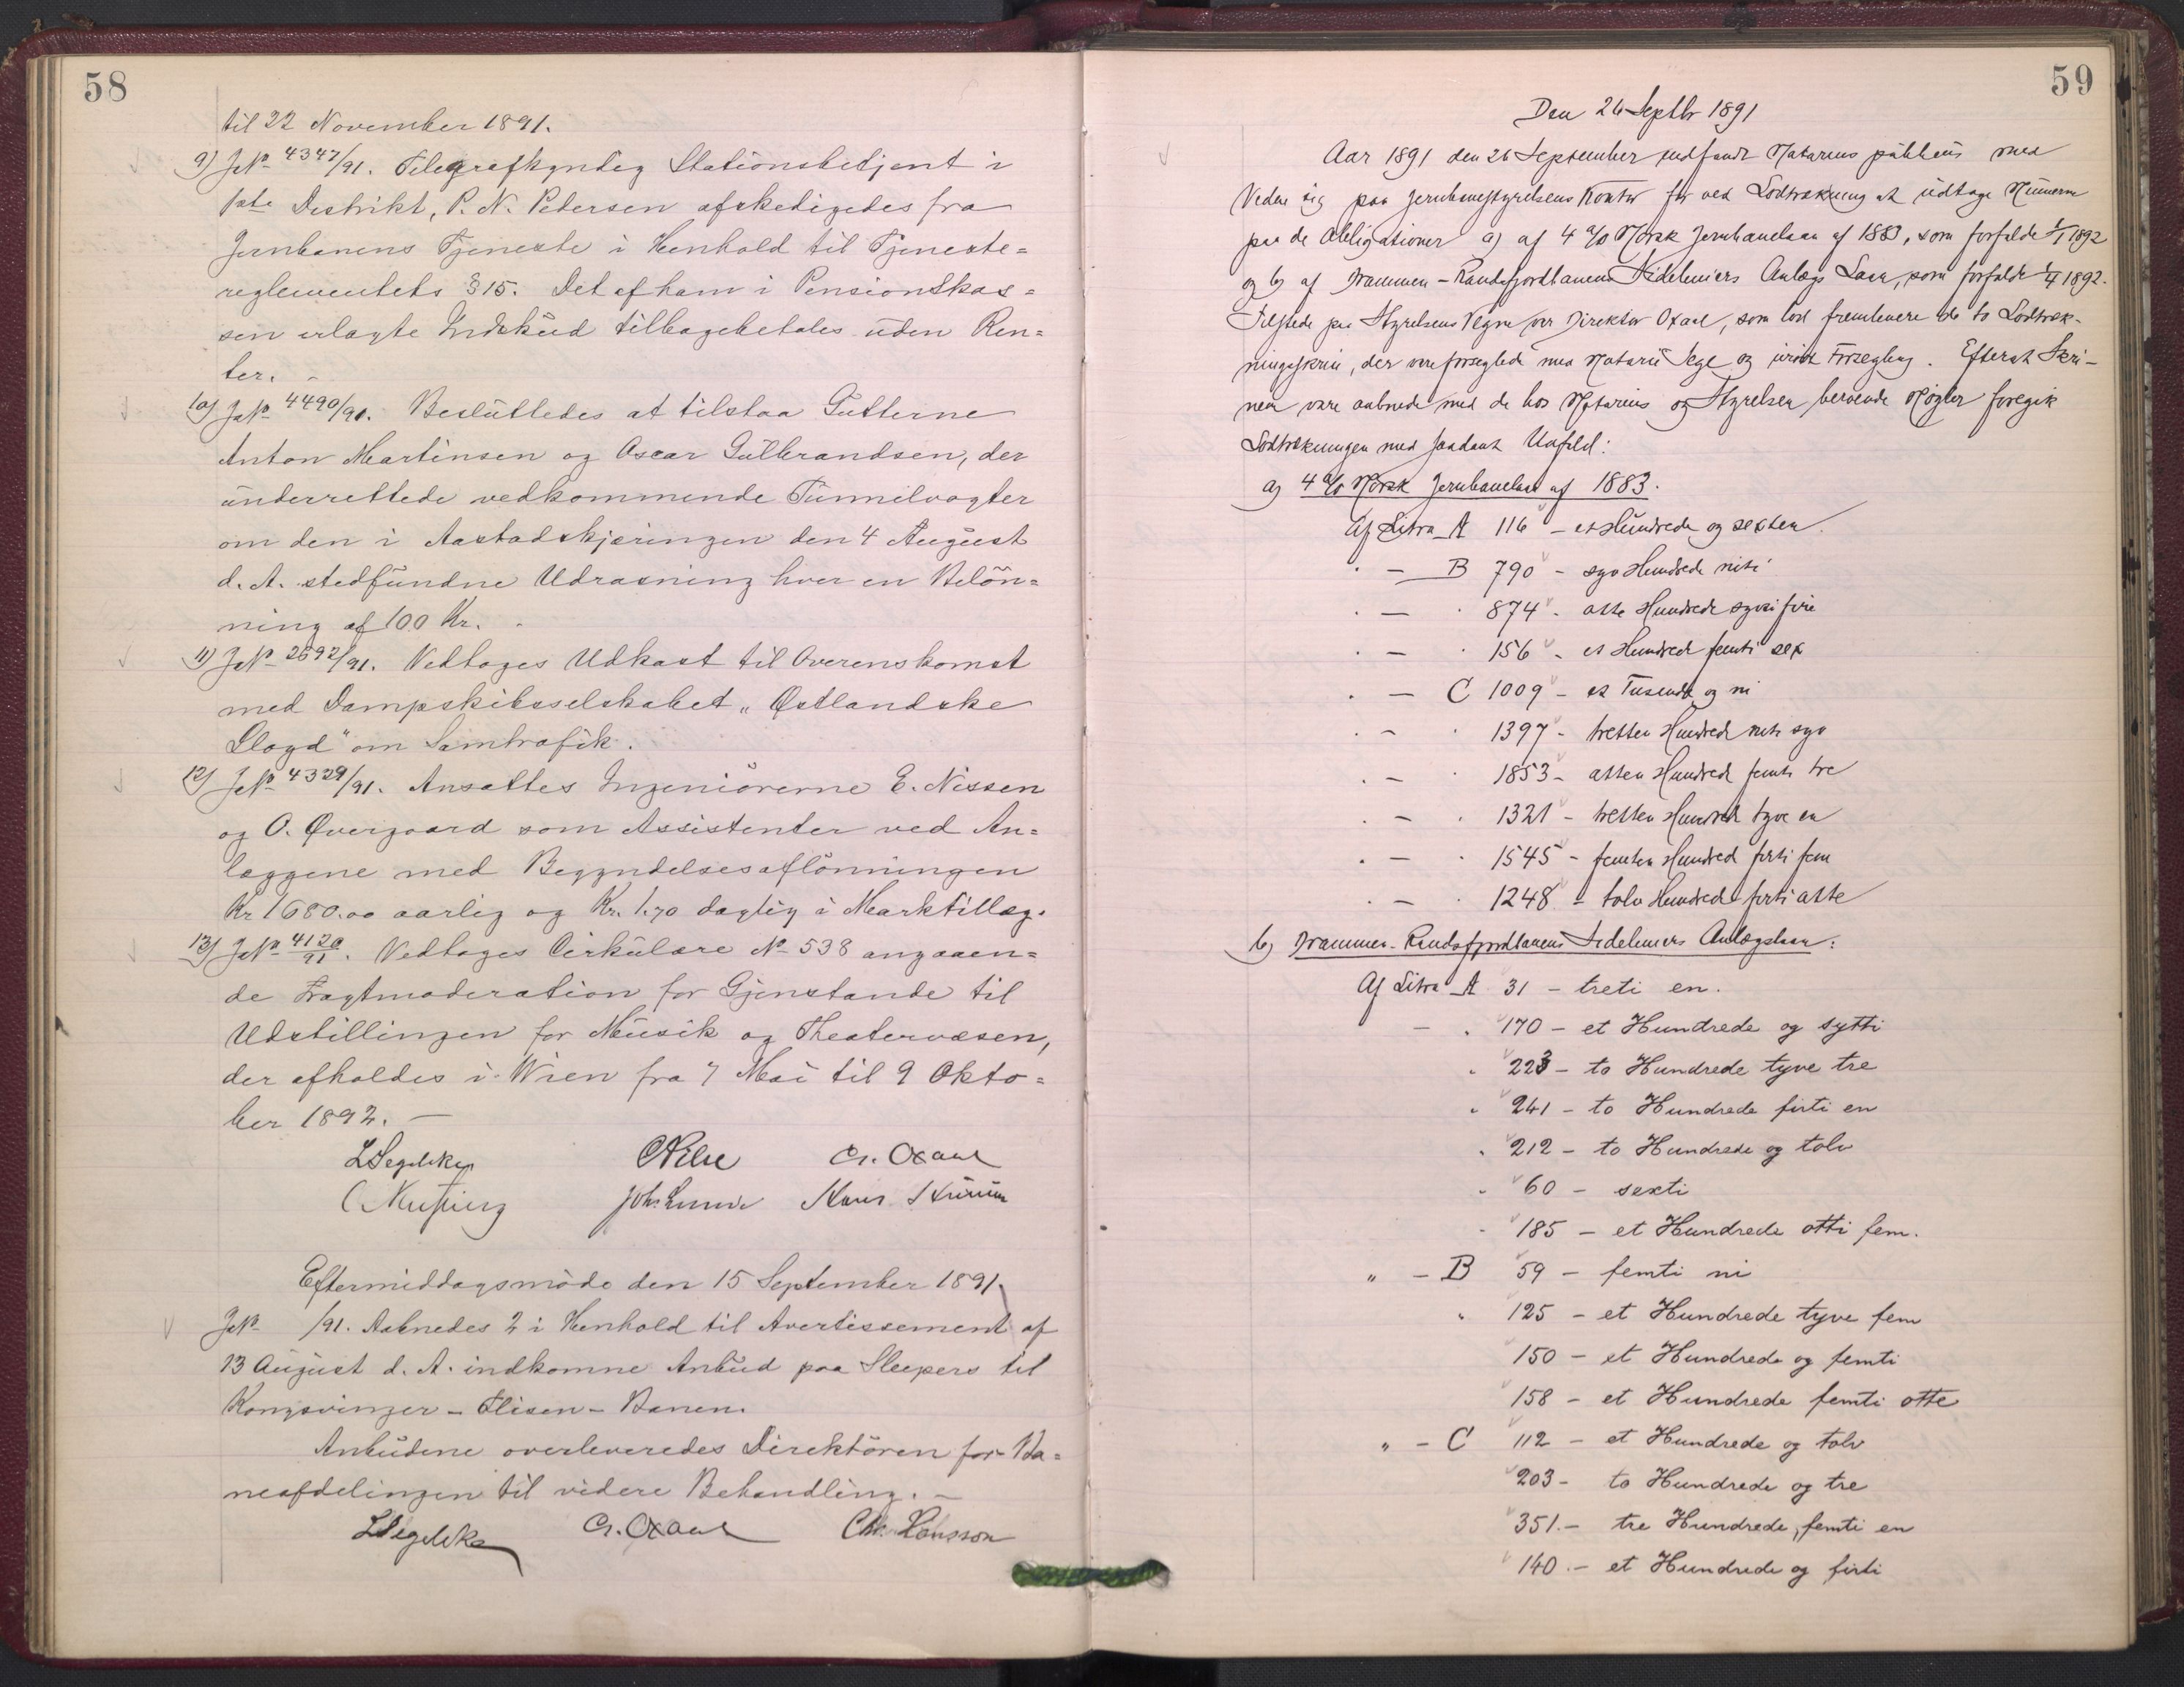 58
til 22 November 1891.
9) JNo 4347/91. Telegrafkyndig Stationsbetjent i
1ste Distrikt, P. N. Pedersen afskedigedes fra
Jernbanens Tjeneste i Henhold til Tjeneste=
reglementets § 15. Det af ham i Pensionskas=
sen erlagte Indskud tilbagebetales uden Ren=
ter. -
10) JNo 4490/91. Besluttedes at tilstaa Gutterne
Anton Martinsen og Oscar Gulbrandsen, der
underrettede vedkommende Tunnelvogter
om den i Aastadskjæringen den 4 August
d. A. stedfundne Udrasning hver en Beløn=
ning af 100 Kr. -
11) JNo 2592/91. Vedtoges Udkast til Overenskomst
med Dampskibsselskabet „Østlandske
Lloyd" om Samtrafik.
12) JNo 4329/91. Ansattes Ingeniørerne E. Nissen
og O. Øvergaard som Assistenter ved An=
læggene med Begyndelsesaflønningen
Kr 1680.00 aarlig og Kr. 1.70 daglig i Marktillæg.
13) JNo 4120/91. Vedtoges Cirkulære No 538 angaaen=
de Fragtmoderation for Gjenstande til
Udstillingen for Musik og Theatervæsen,
der afholdes i Wien fra 7 Mai til 9 Okto=
ber 1892. —
LSegelcke CPihl Cr. Oxaal
Joh. Lunde Hans
Eftermiddagsmøde den 15 September 1891.
JNo /91. Aabnedes 2 i Henhold til Avertissement af
13 August d. A. indkomne Anbud paa Sleepers til
Kongsvinger - Flisen - Banen.
Anbudene overleveredes Direktøren for Ba=
neafdelingen til videre Behandling. —
LSegelcke Cr. Oxaal Chr. Hansson
59
Den 26 Septbr 1891
Aar 1891 den 26 September indfandt Notarius publicus med
Vidne sig paa Jernbanestyrelsens Kontor for ved Lodtrækning at udtage Numerne
paa de Obligationer a) af 4 % Norsk Jernbanelaan af 1883, som forfalde 1/1 1892
og b) af Drammen - Randsfjordbanens Sidelinies Anlægs Laan, som forfalde 1892.
Tilstede paa Styrelsens Vegne var Direktør Oxaal, som lod fremlevere de to Lodtræk-
ningsskrin, der vare forseglede med Notarii Segl og urørt Forsegling. Efterat Skri-
nene vare aabnede med de hos Notarius og Styrelsen beroende Nøgler foregik
Lodtrækningen med saadant Udfald:
a) 4 % Norsk Jernbanelaan af 1883.
Af Litra A 116 - et Hundrede og sexten
" — B 790 - syv Hundrede niti
" — " 874 - otte Hundrede sytti fire
" — " 156 - et Hundrede femti sex
" — C 1009 - et Tusende og ni
" — " 1397 - tretten Hundrede niti syv
" — " 1853 - atten Hundrede femti tre
" — " 1321 - tretten Hundrede tyve en
" — " 1545 - femten Hundrede firti fem
" — " 1248 - tolv Hundrede firti otte
b) Drammen-Randsfjordbanens Sidelinies Anlægslaan:
Af Litra A 31 - treti en.
— " 170 - et Hundrede og sytti
" 223 - to Hundrede tyve tre
" 241 - to Hundrede firti en
" 212 - to Hundrede og tolv
" 60 - sexti
" 185 - et Hundrede otti fem.
" - B 59 - femti ni
" 125 - et Hundrede tyve fem
150 - et Hundrede og femti
158 - et Hundrede femti otte
" - C 112 - et Hundrede og tolv
203 - to Hundrede og tre
351. - tre Hundrede, femti en
140. - et Hundrede og firti